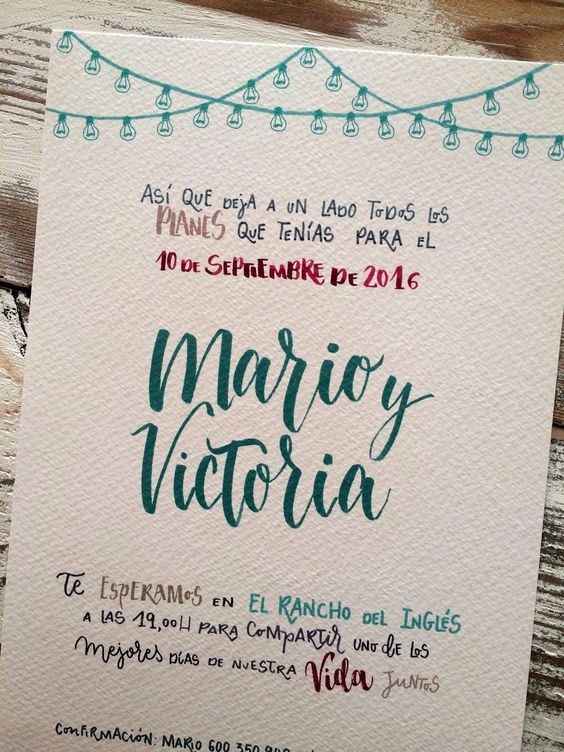 Así que deja a un lado todos los
PLANES que tenías para el
10 de SEPTIEMBRE de 2016
Mario y
Victoria
Te ESPERAMOS en EL RANCHO DEL INGLÉS
a las 19,00H para compartir uno de los
mejores días de nuestra Vida juntos
Confirmación: Mario 600 350